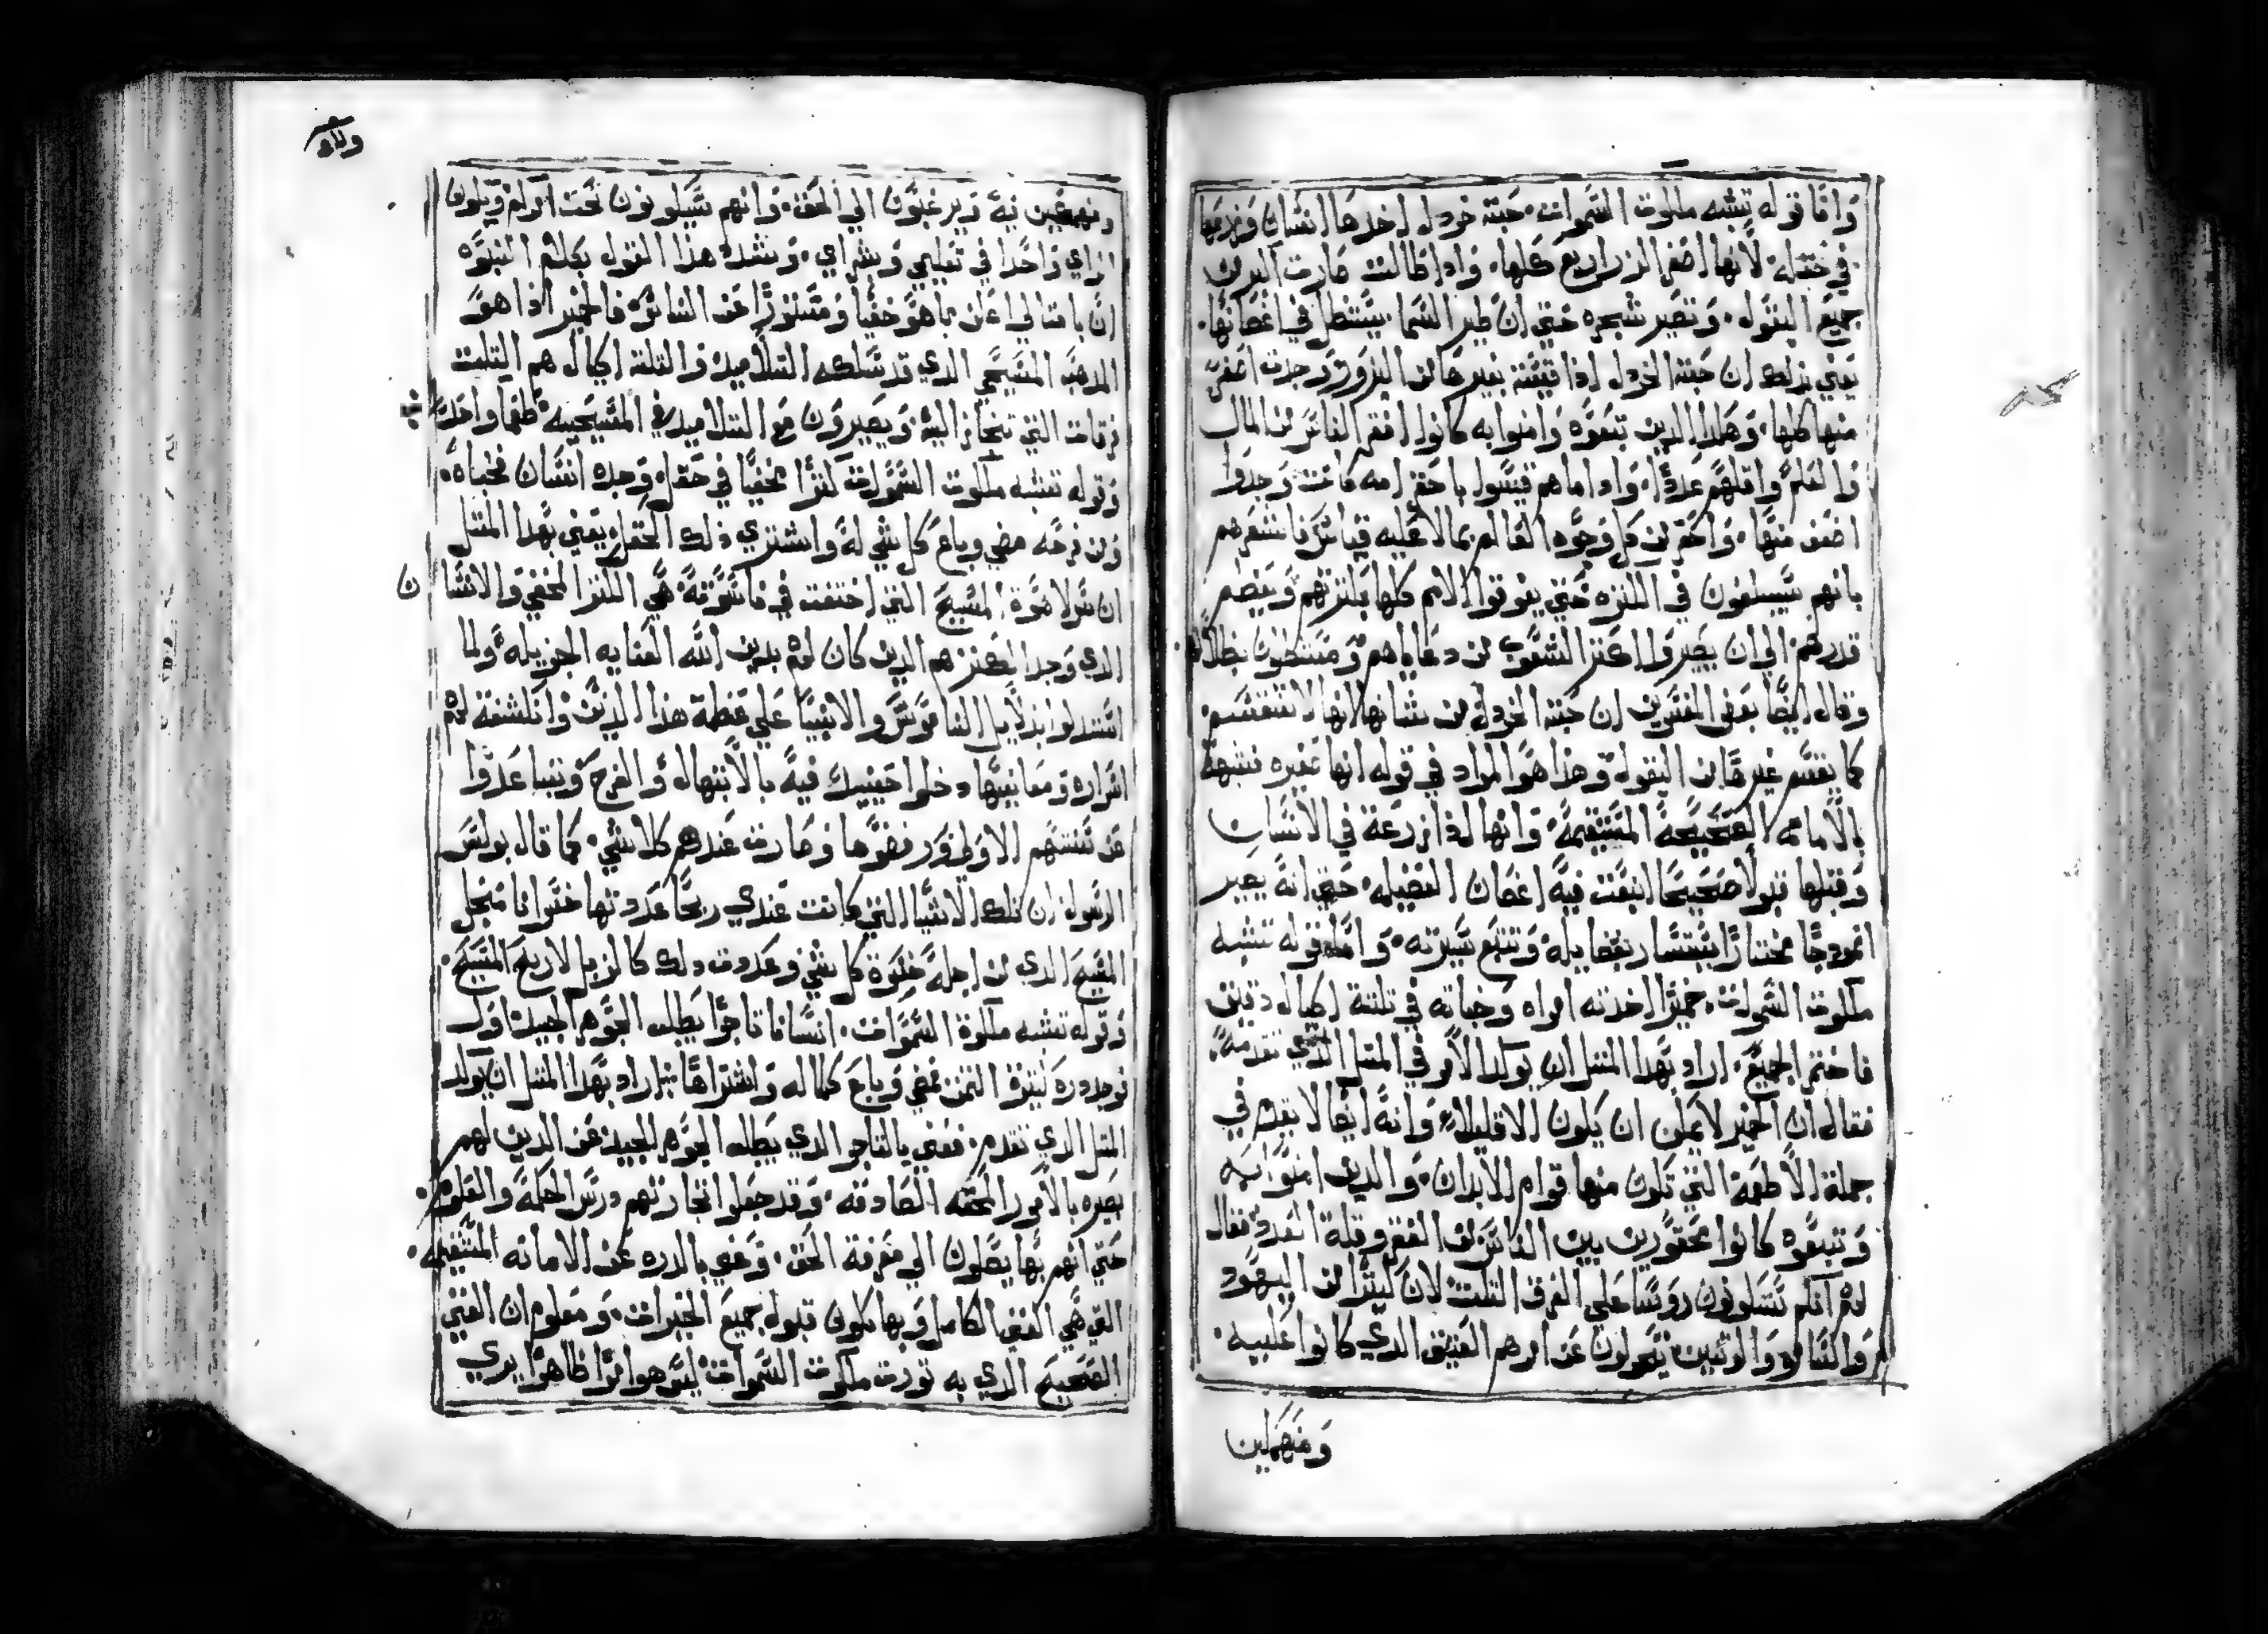 واما قوله تشبه ملكوت السموات حبة خردل اخدها انسان وزرعها
في حقله لانها اصغر الزراريع كلها واذا طالت صارت اكبر من
جميع البقول وتصير شجره حتي ان طير السما يستظل في اغصانها
يعني بذلك ان حبة الخردل اذا قيست بغيرها من البزور وجدت اصغر
منها كلها وهكذا الدين تبعوه وامنوا به كانوا افقر الناس من المال
والعلم واقلهم عددا واذا ما هم قيسوا باحقر امه كانت وجدوا
اضعف منها واحقر من كل وجوه العالم بما لا عليه قياس فاشعرهم
بانهم سيبلغون في الكثره حتي يفوقوا الامم كلها بكثرتهم ويعضم
قدرهم الي ان يصيروا اكثر الشعوب من دعاياهم ومستظلون بظلالهم
وقال ايضا بعض المفسرين ان حبة الخردل من شانها انها لا تنقسم
كما يقسم غيرها من البقول وهذا هو المراد في قوله انها صغيره فشبهها
بالامانه الصحيحة المستقيمة وانها اذا زرعة في الانسان
وقبلها قبولا صحيحا انبتت فيه اغصان الفضيله حتي انه يصير
انمودجا مختارا يستسار بفضايله وتتبع سيرته واما قوله تشبه
ملكوت السموات خميرا اخدته امراه وخباته في تلتة اكيال دقيق
فاختمر الجميع اراد بهدا المتل ان يوكد الامر في المتل الدي تقدمه
فقال ان الخمير لا يمكن ان يكون الا قليلا وانه ايضا لا يعد في
جملة الاطعمة التي تكون منها قوام الابدان والدين امنوا به
وتبعوه كانوا محقورين بين الناس من الفقر وقلة العدد فقال
لهم انكم تسكونون روسا علي الفرق التلت لان كثيرا من اليهود
والسامره والوثنين يتحولون عن امرهم العتيق الدي كانوا عليه
ومنهملين
ومنهملين فيه ويرغبون الي الحق وانهم سيكونون تحت اوامركم ويكون
الراي واحدا في تعليمي وبشراي وشدد هذا القول بكلام النبوه
ان بامتالي اعلن ما هو خفيا ومستورا عن الناس فالخمير اذا هو
المدهب المسيحي الدي قد سلكه التلاميد والتلتة اكيال هم التلت
فرقات التي تنحاز اليه ويصيرون مع التلاميد في المسيحيه طعما واحدا
وقوله تشبه ملكوت السموات كنزا مخفيا في حقل وجده انسان فخباه
ومن فرحه مضي وباع كل شي له واشتري ذلك الحقل يعني بهدا المتل
ان سر لاهوة المسيح التي اختفت في ناسوته هي الكنز المخفي والانسان
الدي وجد الكنز هم الدين كان لهم بدين الله العنايه الجزيله ولما
استدلوا بدلايل الناموس والانبيا علي عظمة هذا الدين وانكشفة لهم
اسراره ومعانيها دخلوا حينيد فيه بالابتهال والفرح وتباعدوا
عن سننهم الاولي ورفضوها وصارت عندهم كلا شي كما قال بولس
الرسول ان تلك الاشيا التي كانت عندي ربحا عددتها خسرانا من اجل
المسيح الدي من اجله خسرة كل شي وعددت دلك كالزبل لاربح المسيح
وقوله تشبه ملكوة السموات انسانا تاجرا يطلب الجوهر الجيد وانه
وجد دره كثيرة التمن فمضي وباع كلما له واشتراها اراد بهدا المتل ان يوكد
المتل الدي تقدم فعني بالتاجر الدي يطلب الجوهر الجيد عن الدين لهم
بصيره بالامور المحقه الصادقه وقد جعلوا تجارتهم درس الحكمة والعلوم
حتي انهم بها يصلون الي معرفة الحق وعني بالدره عن الامانه المستقيمه
التي هي الغني الكامل وبها يكون قبول جميع الخيرات ومعلوم ان الغني
الصحيح الدي به تورت ملكوت السموات ليس هو امرا ظاهرا يري